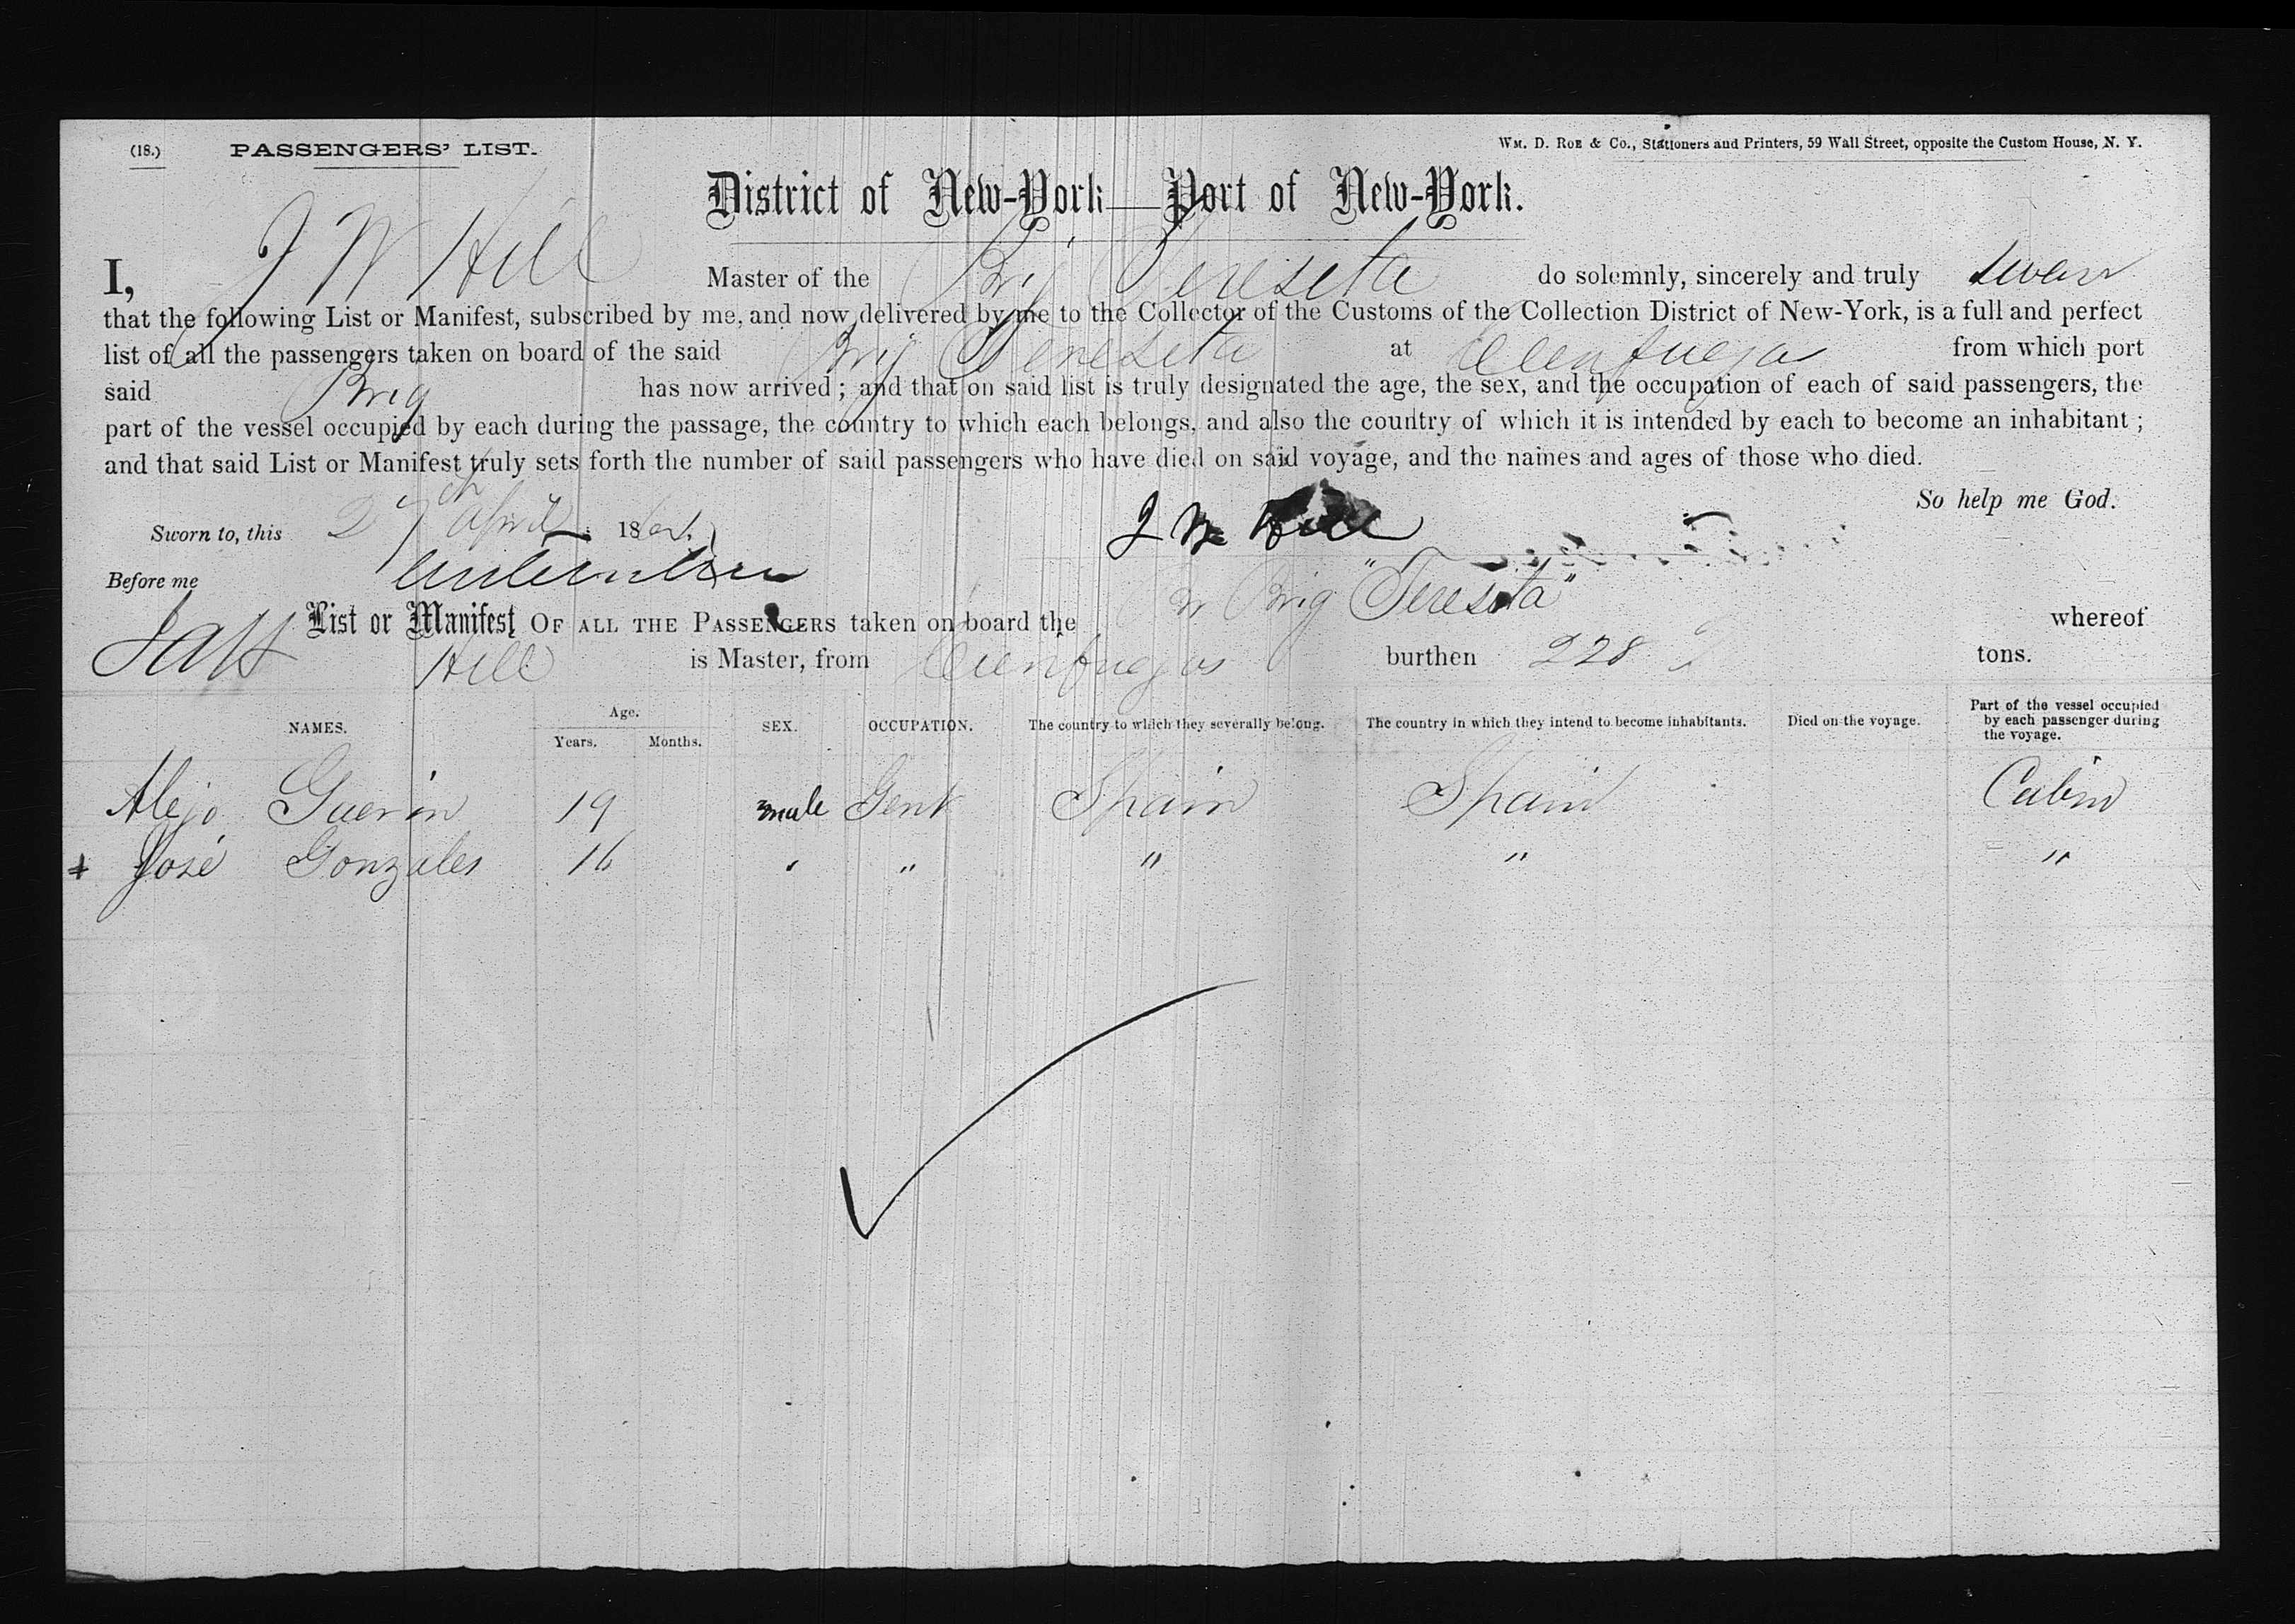 (18.) PASSENGERS' LIST. Wm. D. Roe & Co., Stationers and Printers, 59 Wall Street, opposite the Custom House, N. Y.
District of New-York—Port of New-York.
I, J W Hill Master of the Brig Tereseta do solemnly, sincerely and truly swear
that the following List or Manifest, subscribed by me, and now delivered by me to the Collector of the Customs of the Collection District of New-York, is a full and perfect
list of all the passengers taken on board of the said Brig Tereseta at Cienfuegos from which port
said Brig has now arrived; and that on said list is truly designated the age, the sex, and the occupation of each of said passengers, the
part of the vessel occupied by each during the passage, the country to which each belongs, and also the country of which it is intended by each to become an inhabitant;
and that said List or Manifest truly sets forth the number of said passengers who have died on said voyage, and the names and ages of those who died.
So help me God.
Sworn to, this 27th April 186 J W Hill
Before me
List or Manifest OF ALL THE PASSENGERS taken on board the Brig "Teresita" whereof
Hill is Master, from Cienfuegos burthen 228 tons.
NAMES. Age. Years. Months. SEX. OCCUPATION. The country to which they severally belong. The country in which they intend to become inhabitants. Died on the voyage. Part of the vessel occupied by each passenger during the voyage.
Alejo Guerin 19 male Gent Spain Spain Cabin
+ José Gonzales 16 " " " " "